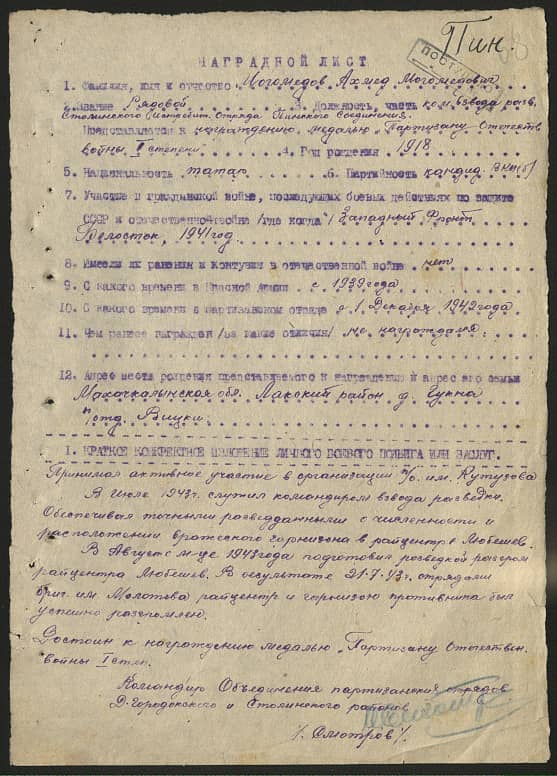 Пин.
НАГРАДНОЙ ЛИСТ
1. Фамилия, имя и отчество Могомедов Ахмед Могомедович
2. Звание Рядовой 3. Должность, часть ком. взвода разв.
Столинского Отряда Пинского Соединения.
Представляется к награждению медалью "Партизану Отечеств.
войны I степени" 4. Год рождения 1918
5. Национальность татар 6. Партийность кандид. ВКП(б)
7. Участие в гражданской войне, последующих боевых действиях по защите
СССР и отечественной войне /где когда/ Западный Фронт
Белосток, 1941 год.
8. Имеели их ранения и контузии в отечественной войне нет
9. С какого времени в Красной Армии с 1939 года
10. С какого времени в партизанском отряде с 1 Декабря 1942 года
11. Чем ранее награжден /за какие отличия/ не награждался.
12. Адрес места рождения представляемого к награждению и адрес его семьи
Махачкалинская обл. Лакский район д.
п/отд. Вицхи.
I. КРАТКОЕ КОНКРЕТНОЕ ИЗЛОЖЕНИЕ ЛИЧНОГО БОЕВОГО ПОДВИГА ИЛИ ЗАСЛУГ.
Принимал активное участие в организации п/о. им. Кутузова
В Июле 1943 г. служил командиром взвода разведки.
Обеспечивал точными разведданными о численности и
расположении вражеского гарнизона в райцентре Любешев.
В Августе м-це 1943 года подготовил разведкой разгром
райцентра Любешев. В результате отрядами
бриг. им. Молотова райцентр и гарнизон противника был
успешно разгромлен.
Достоин к награждению медалью "Партизану Отечествен.
войны I степ.
Командир Объединения партизанских отрядов
Д-Городокского и Столинского районов
/. Смотров /.